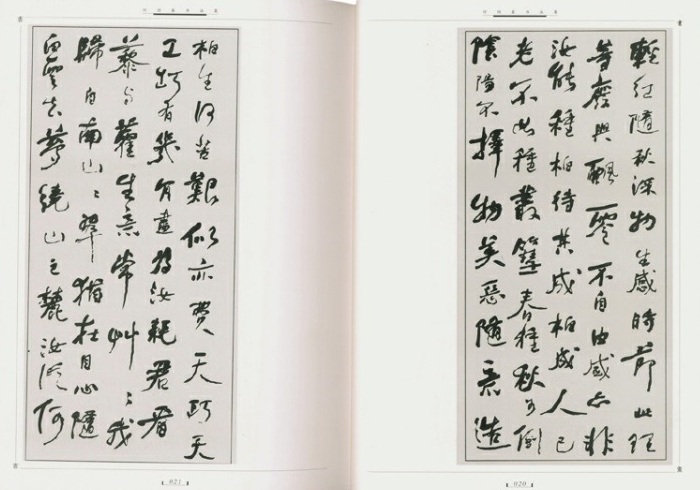 輕紅隨秋深物生感時節此
等廢與飄零不自由感亦非
汝能種柏待其成柏成人已
老不如種叢篲春種秋可倒
陰陽不擇物美惡隨意造
020
柏生何苦艱似亦費天巧天
工巧有幾肯盡為汝耗君看
藜與藿生意常艸〻我
歸自南山〻翠猶在目心隨
白雲去夢繞山之麓汝從何
021